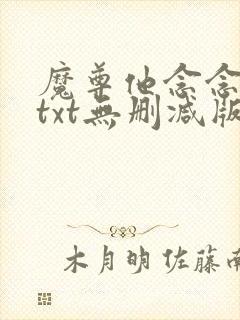 魔尊他念念
txt無删减版
木月明 佐藤南